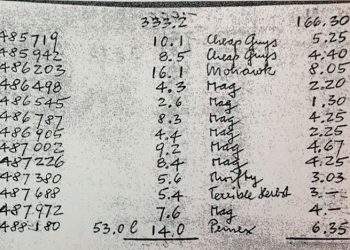 333.2 166.30
485719 10.1 Cheap Guys 5.25
485942 8.5 Cheap Guys 4.40
486203 16.1 Mohawk 8.05
486498 4.3 Mag 2.20
486545 2.6 Mag 1.30
486787 8.3 Mag 4.25
486905 4.4 Mag 2.25
487002 9.2 Mag 4.67
487226 8.4 Mag 4.25
487380 5.6 Murphy 3.03
487688 5.4 Terrible Herbst 3.—
487972 7.6 Mag 4.—
488180 53.0 l 14.0 Pemex 6.35